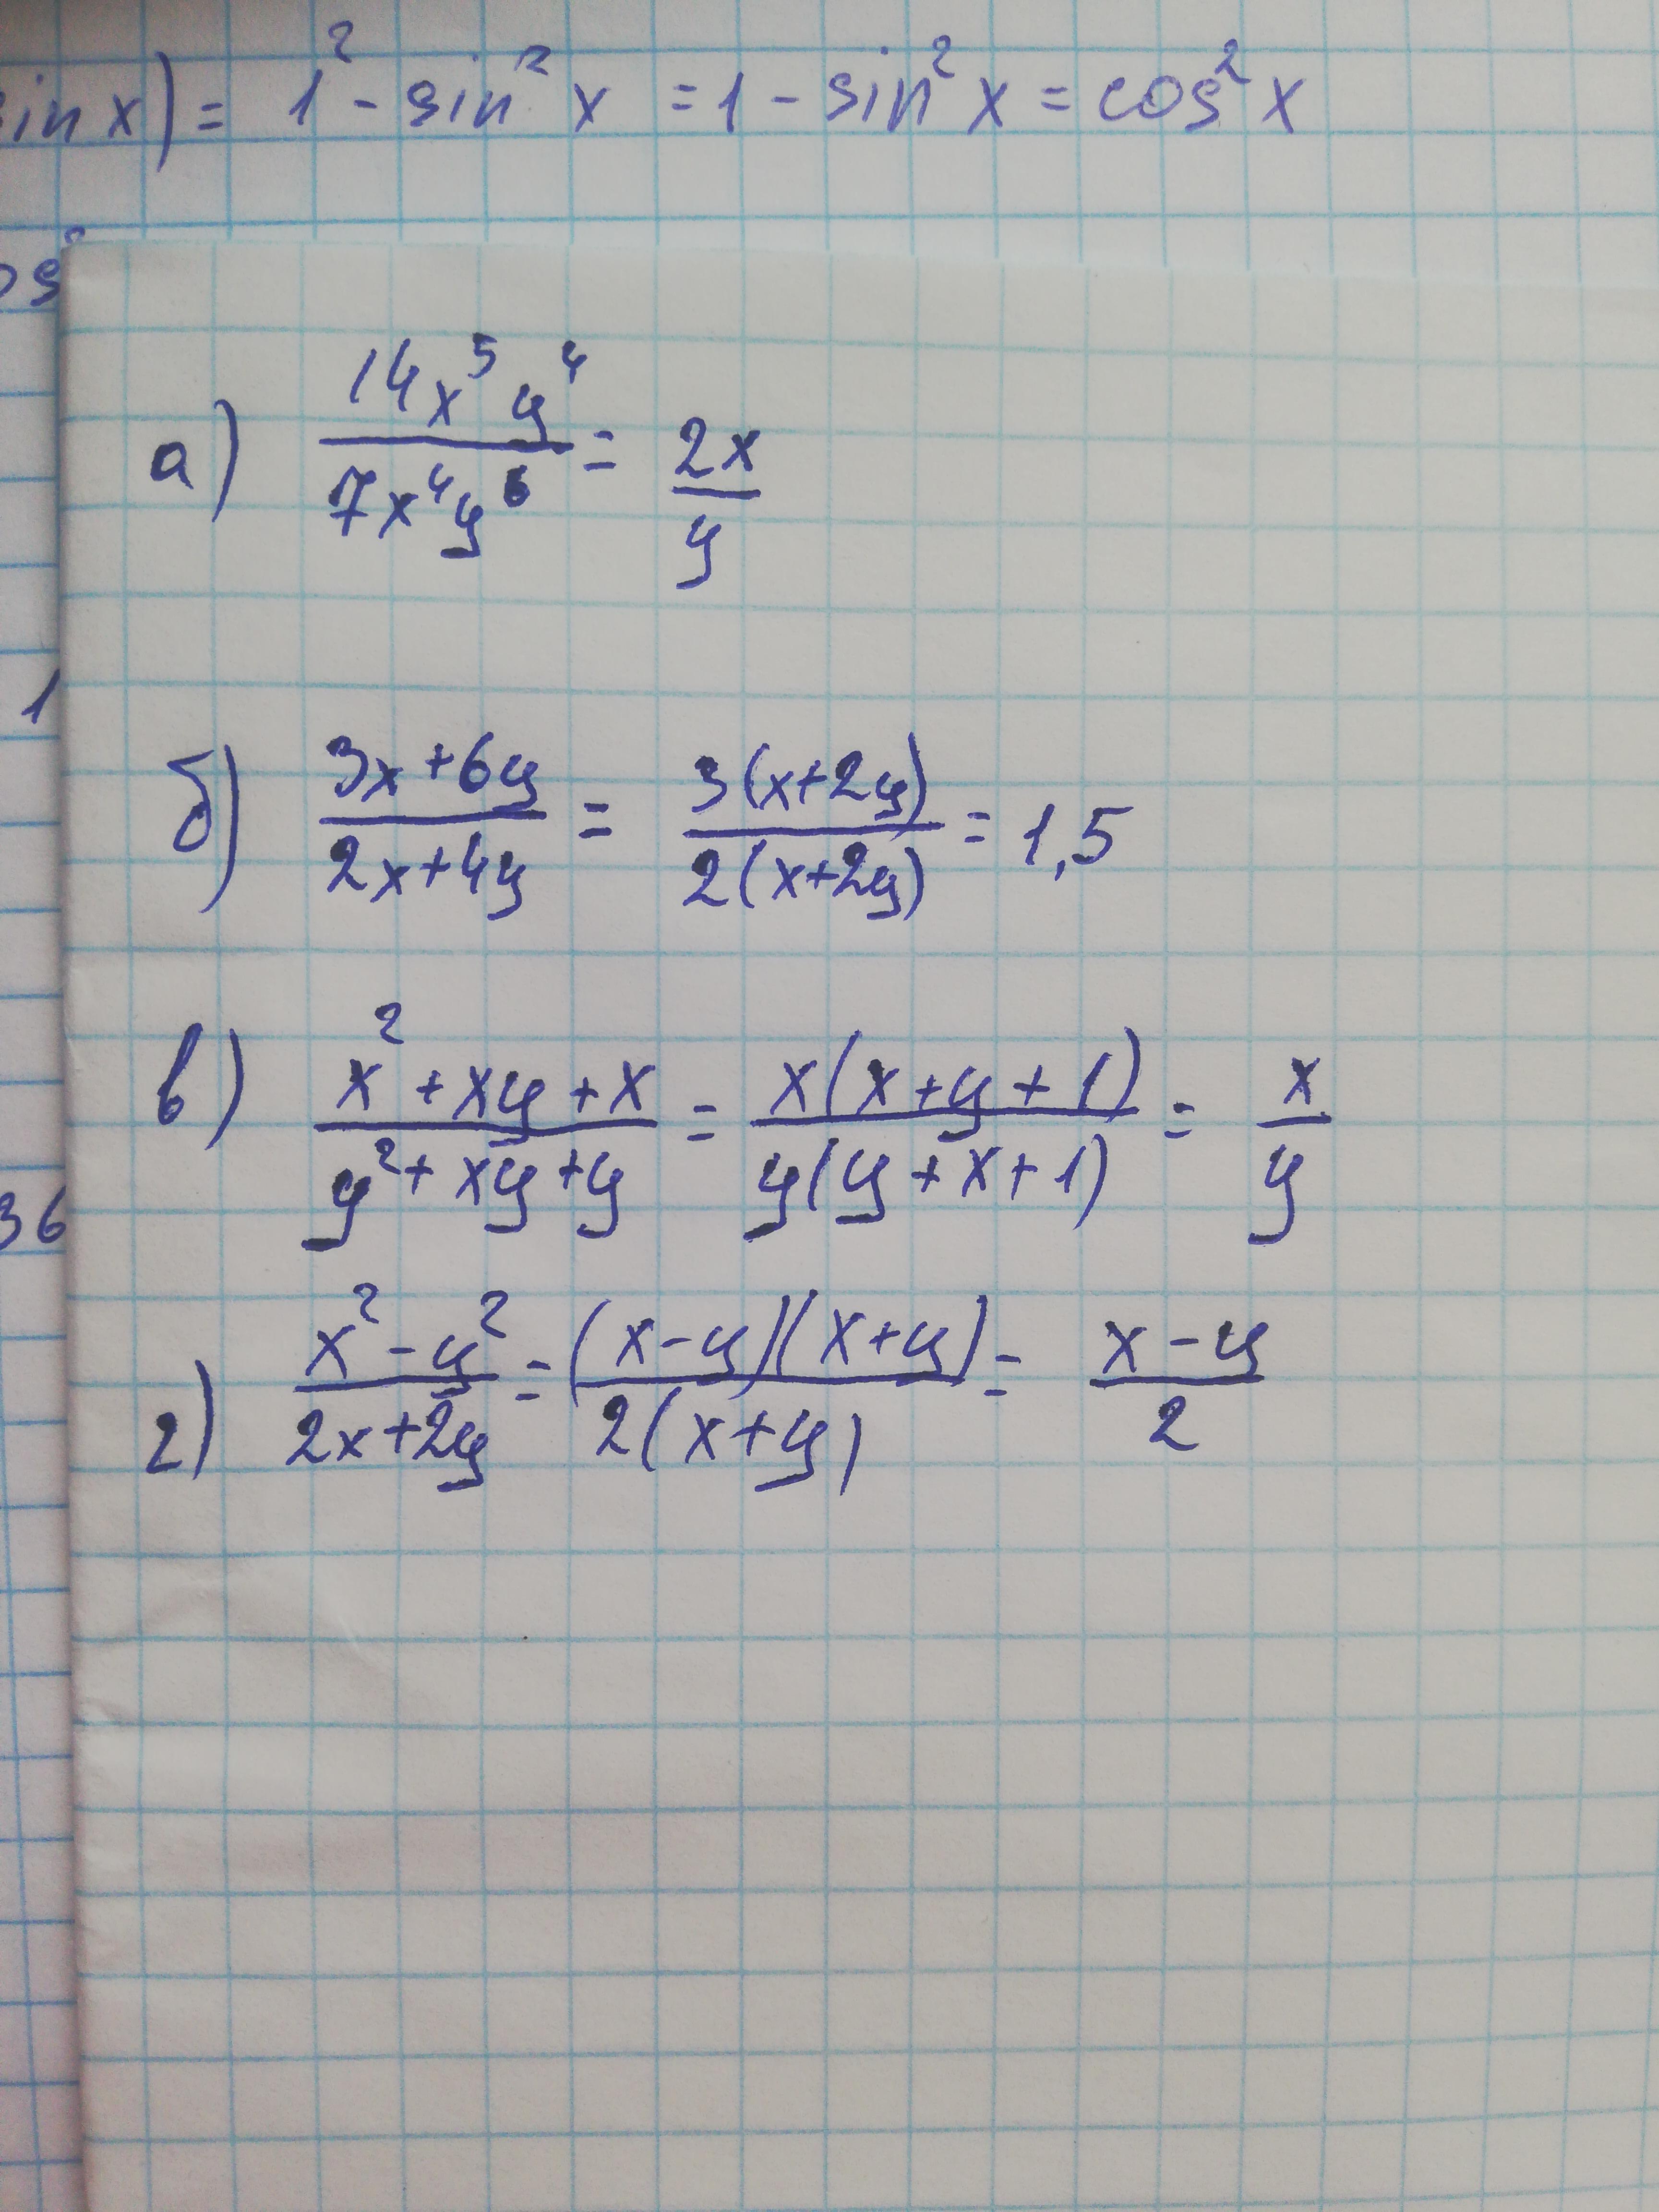 in x) = 1² - sin² x = 1 - sin² x = cos² x
os²
а) 14x⁵y⁴ / 7x⁴y⁶ = 2x / y
1
б) 3x+6y / 2x+4y = 3(x+2y) / 2(x+2y) = 1,5
в) x²+xy+x / y²+xy+y = x(x+y+1) / y(y+x+1) = x / y
36
г) x²-y² / 2x+2y = (x-y)(x+y) / 2(x+y) = x-y / 2